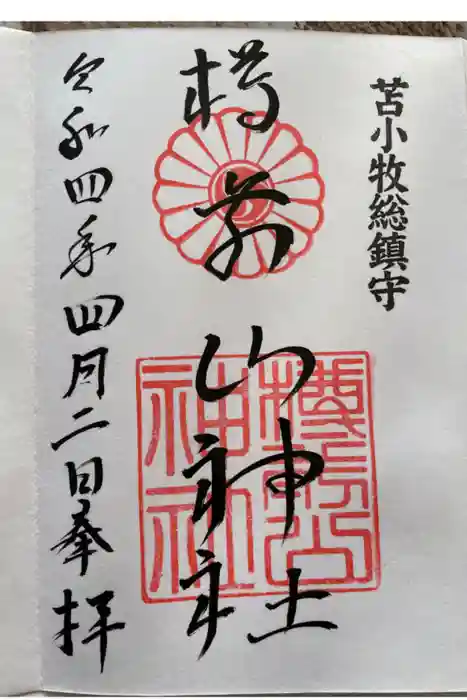 苫小牧総鎮守
樽前山神社
樽前山神社
令和四年四月二日奉拝